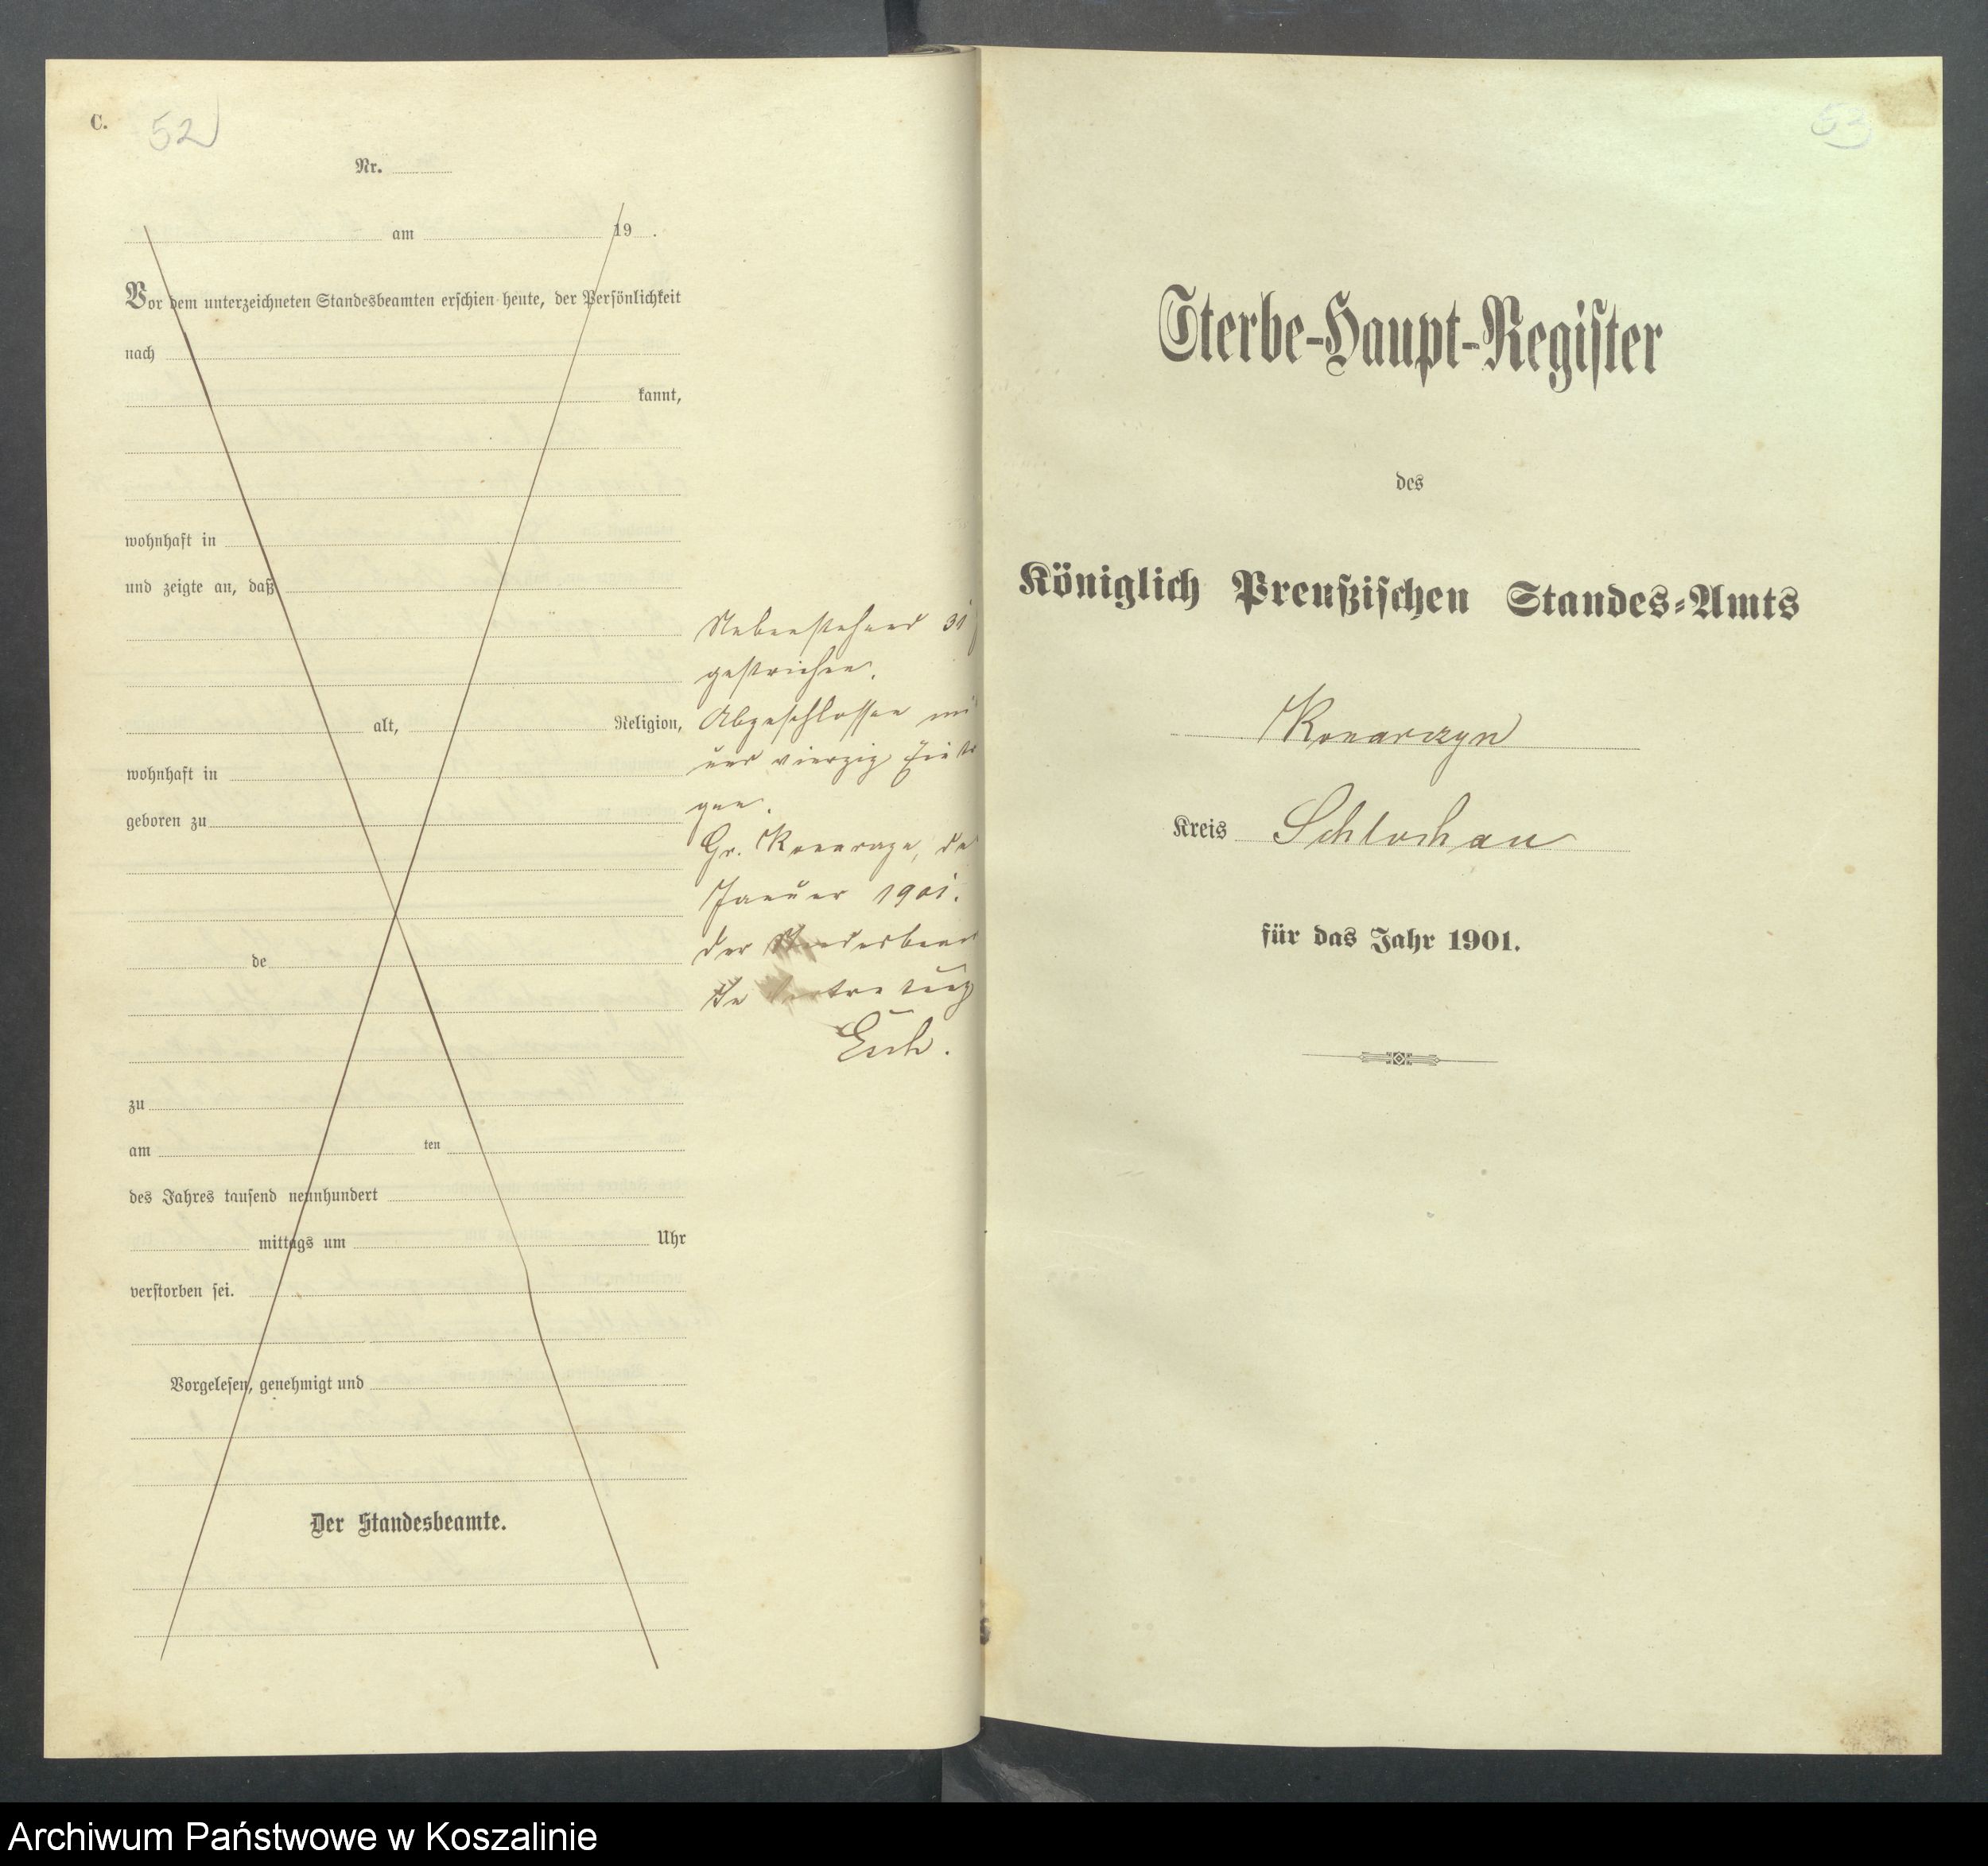 C.
52
Nr.
am 19 .
Vor dem unterzeichneten Standesbeamten erschien heute, der Persönlichkeit
nach
kannt,
wohnhaft in
und zeigte an, daß
alt, Religion,
wohnhaft in
geboren zu
de
zu
am ten
des Jahres tausend neunhundert
mittags um Uhr
verstorben sei.
Vorgelesen, genehmigt und
Der Standesbeamte.
Nebenstehend 31
gestrichen.
Abgeschlossen mi
und vierzig Eintr
gen.
Gr. Konarczyn, de
Januar 1901.
der Standesbeam
In Vertretung
53
Sterbe-Haupt-Register
des
Königlich Preußischen Standes-Amts
Konarczyn
Kreis Schlochau
für das Jahr 1901.
Archiwum Państwowe w Koszalinie